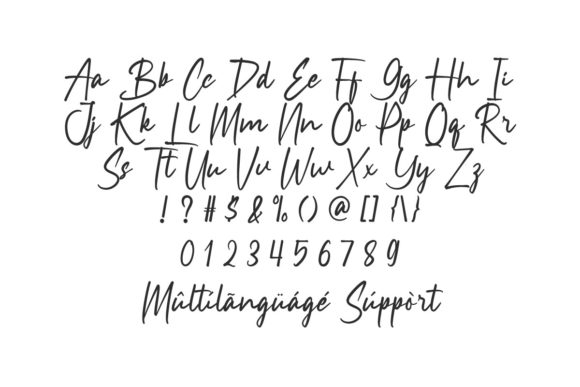 Aa Bb Cc Dd Ee Ff Gg Hh Ii
Jj Kk Ll Mm Nn Oo Pp Qq Rr
Ss Tt Uu Vv Ww Xx Yy Zz
! ? # $ & % () @ [] {\}
0 1 2 3 4 5 6 7 8 9
Mûltílãngüágé Súppòrt